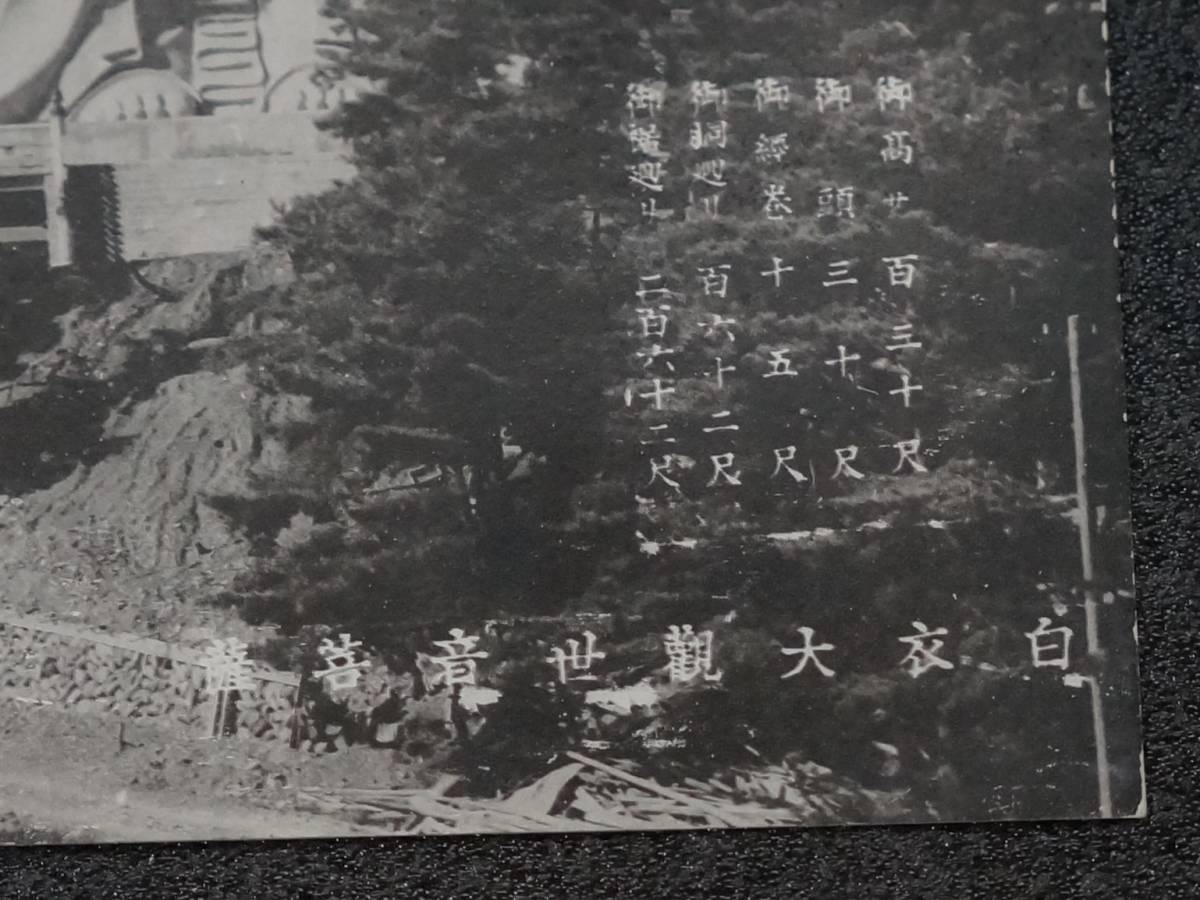 御髙サ 百三十尺
御頭 三十尺
御經巻 十五尺
御胴廻リ 百六十二尺
御廻リ 二百六十二尺
白衣大觀世音菩薩